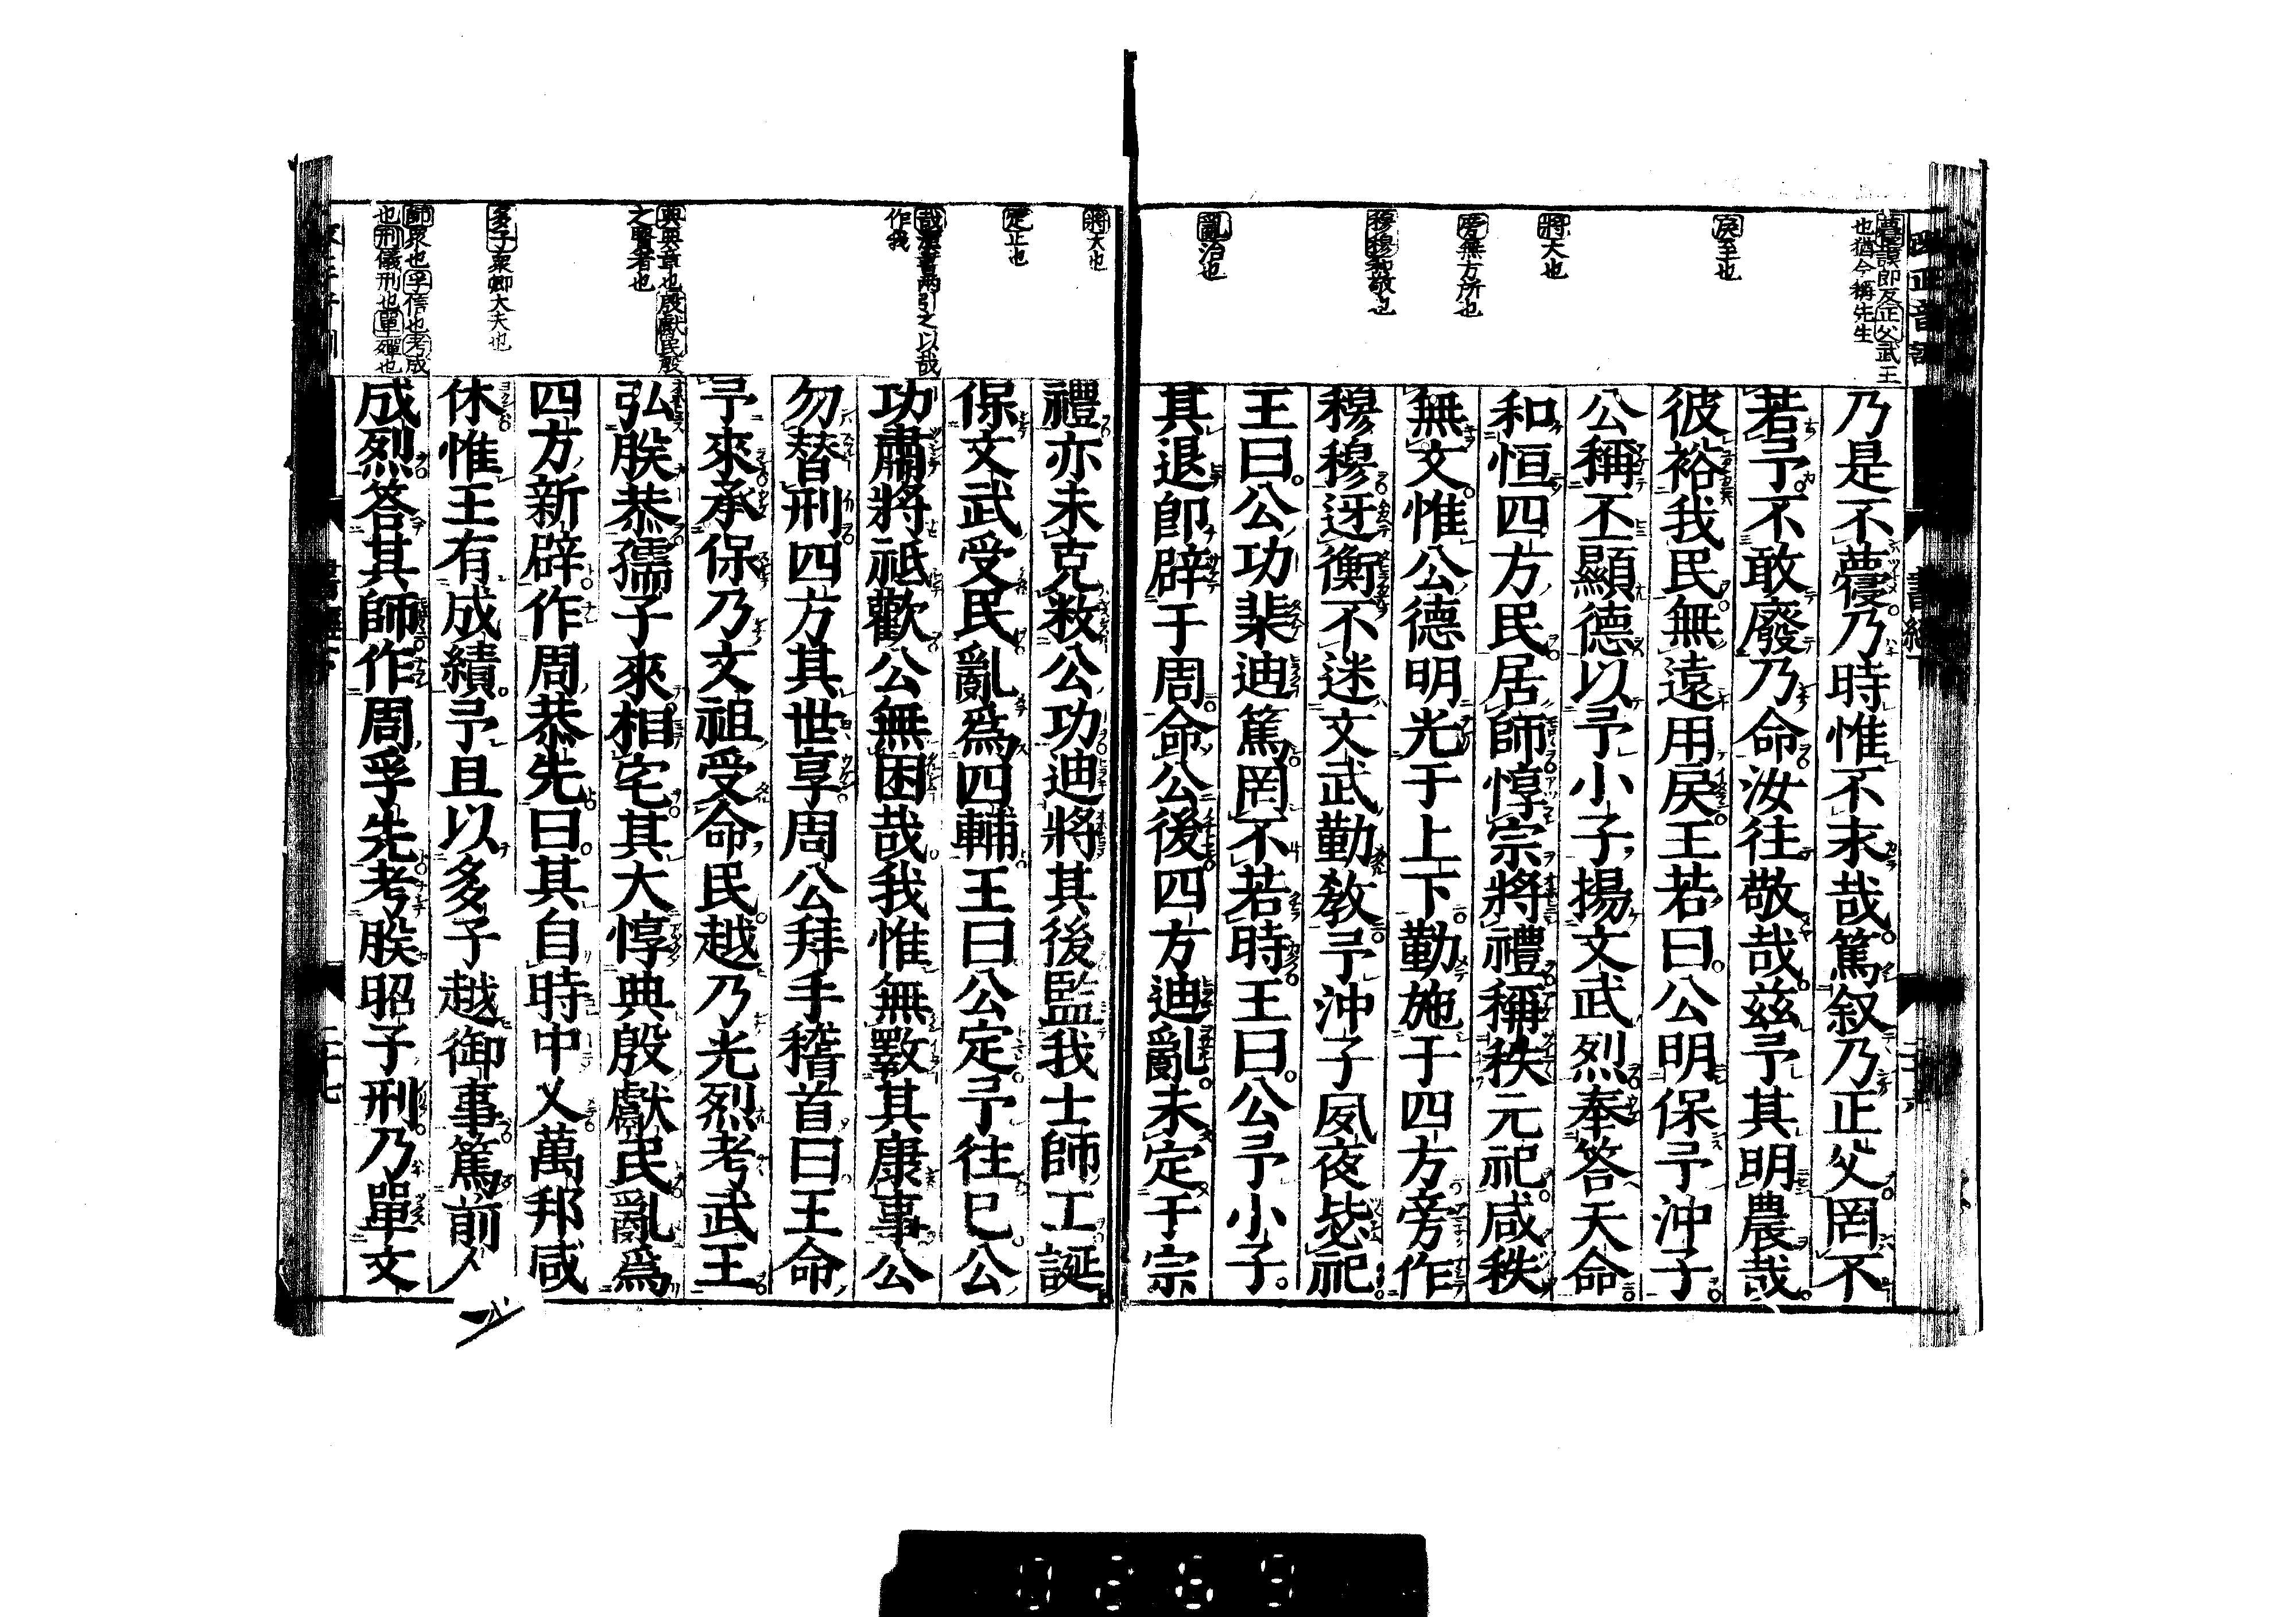 乃是不蘉乃時惟不末哉篤叙乃正父罔不
若予不敢廢乃命汝往敬哉兹予其明農哉
彼裕我民無遠用戾王若曰公明保予沖子
公稱丕顯德以予小子揚文武烈奉答天命
和恒四方民居師惇宗將禮稱秩元祀咸秩
無文惟公德明光于上下勤施于四方旁作
穆穆迓衡不迷文武勤教予沖子夙夜毖祀
王曰公功棐迪篤罔不若時王曰公予小子
其退即辟于周命公後四方迪亂未定于宗
戾至也
將大也
旁無方所也
穆穆和敬也
亂治也
禮亦未克敉公功迪將其後監我士師工誕
保文武受民亂爲四輔王曰公定予往已公
功肅將祗歡公無困哉我惟無斁其康事公
勿替刑四方其世享周公拜手稽首曰王命
予來承保乃文祖受命民越乃光烈考武王
弘朕恭孺子來相宅其大惇典殷獻民亂爲
四方新辟作周恭先曰其自時中乂萬邦咸
休惟王有成績予旦以多子越御事篤前人
成烈答其師作周孚先考朕昭子刑乃單文
將大也
定止也
哉漢書兩引之以哉
作我
典典章也殷獻民殷
之賢者也
多子衆卿大夫也
師衆也孚信也考成
也刑儀刑也單殫也